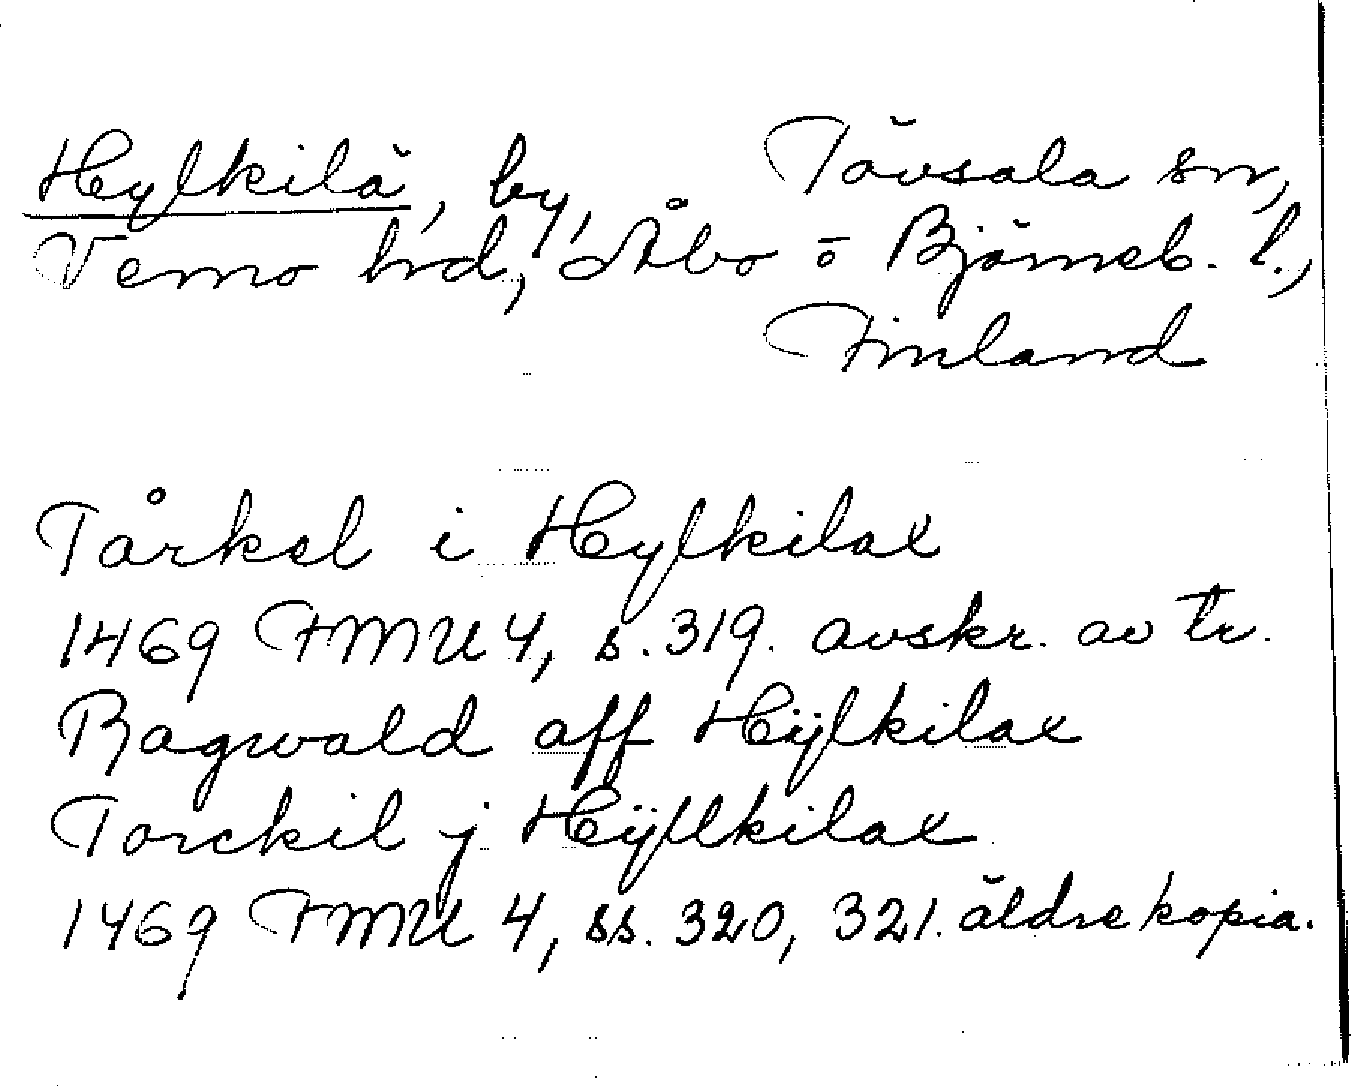 Hylkilä, by, Tövsala sn,
Vemo hrd, Åbo o Björneb. l.,
Finland
Tårkel i Hylkilax
1469 FMU 4, s. 319. avskr. av tr.
Ragwald aff Hÿlkilax
Torckil j Hÿllkilax
1469 FMU 4, ss. 320, 321. äldre kopia.